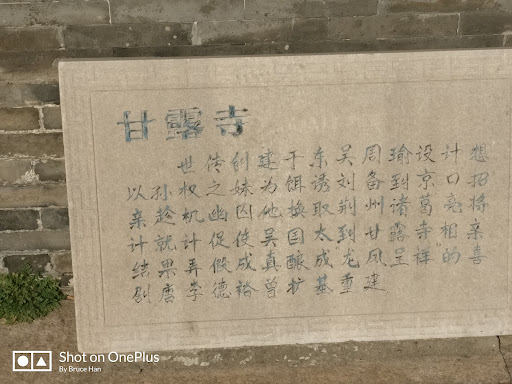 甘露寺
世传创建于东吴周瑜设计想
以孙权之妹为饵诱刘备到京口招
亲趁机幽囚他换取荆州诸葛亮将
计就计促使吴国太到甘露寺相亲
结果弄假成真酿成龙凤呈祥"的喜
剧唐李德裕曾扩基重建
Shot on OnePlus
By Bruce Han